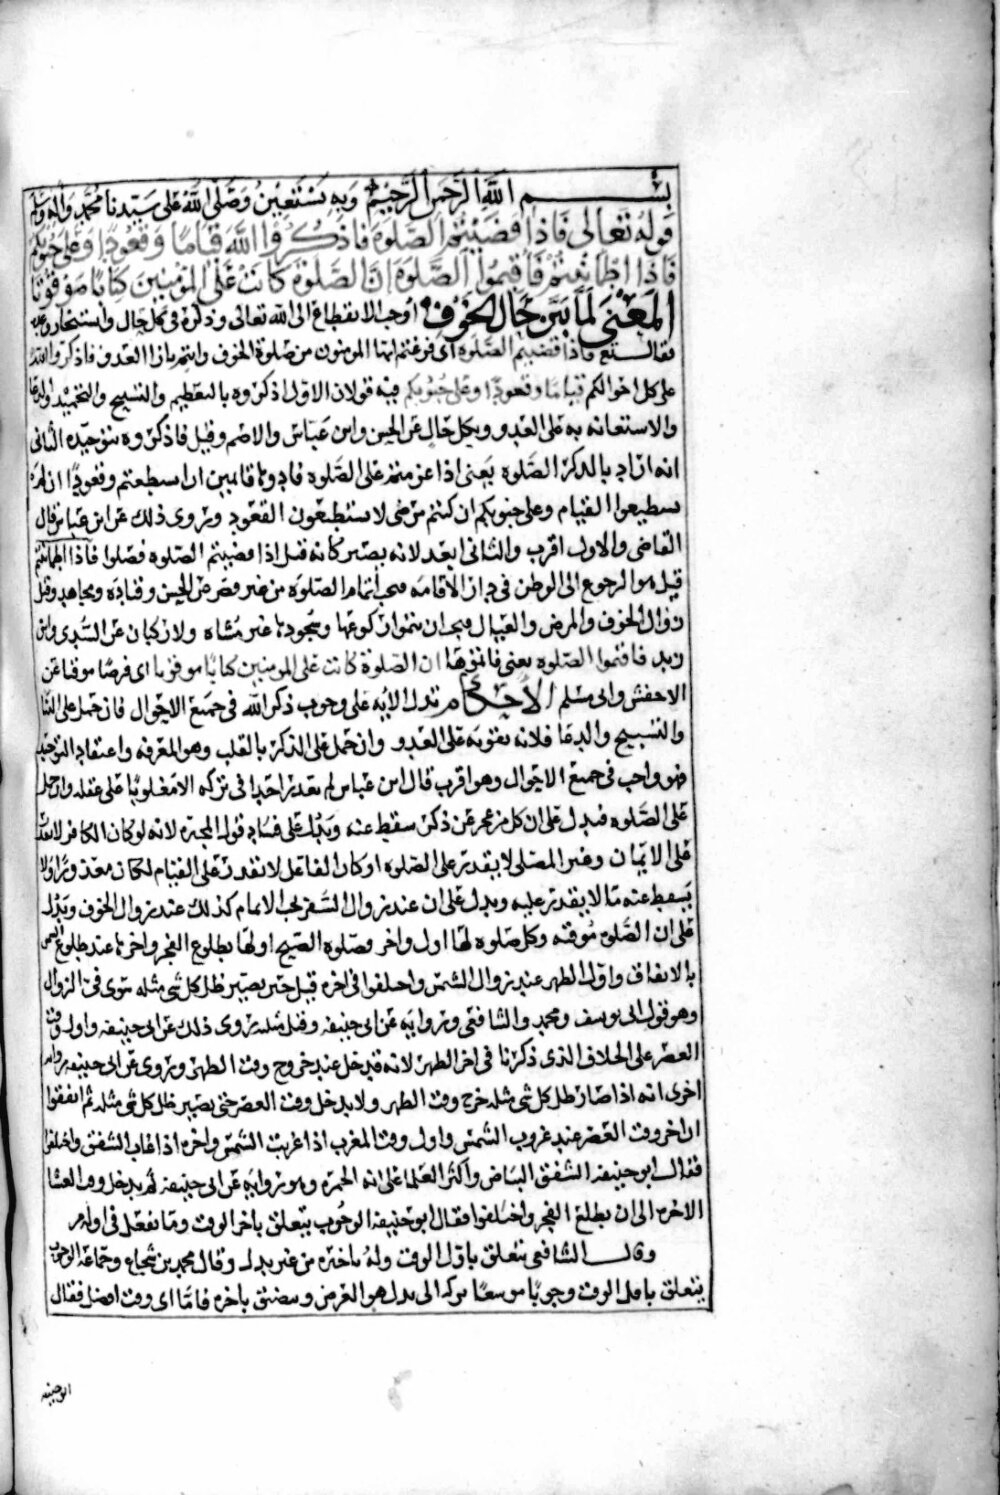 بسم الله الرحمن الرحيم وبه نستعين وصلى الله على سيدنا محمد واله وسلم
قوله تعالى فاذا قضيتم الصلوة فاذكروا الله قياما وقعودا وعلى جنوبكم
فاذا اطماننتم فاقيموا الصلوة ان الصلوة كانت على المومنين كتابا موقوتا
المعنى لما بين حال الخوف اوجب الانقطاع الى الله تعالى وذكره في كل حال
فقال فاذا قضيتم الصلوه اى فرغتم ايها المومنون من صلوة الخوف وانتم بازا العدو فاذكروا الله
على كل احوالكم قياما وقعودا وعلى جنوبكم فيه قولان الاول اذكروه بالتعظيم والتسبيح والتحميد والدعا
والاستعانه به على العدو وبكل حال عن الحسن وابن عباس والاصم وقيل فاذكروه بتوحيده الثانى
انه اراد بالذكر الصلوه يعنى اذا عزمتم على الصلوه فادوها قايمين ان استطعتم وقعودا ان لم
تستطيعوا القيام وعلى جنوبكم ان كنتم مرضى لا تستطيعون القعود وروى ذلك عن ابن عباس قال
القاضى والاول اقرب والثانى ابعد لانه يصير كانه قيل اذا قضيتم الصلوه فصلوا فاذا اطماننتم
قيل هو الرجوع الى الوطن في دار الاقامه فيجب اتمام الصلوه من غير قصر عن الحسن وقتاده ومجاهد وقيل
زوال الخوف والمرض والقتال فيجب ان يتموا ركوعها وسجودها غير مشاه ولا ركبان عن السدى وابن
زيد فاقيموا الصلوه يعنى فاتموها ان الصلوة كانت على المومنين كتابا موقوتا اى فرضا موقتا عن
الاخفش وابى مسلم الاحكام تدل الايه على وجوب ذكر الله في جميع الاحوال فان حمل على الثنا
والتسبيح والدعا فلانه يقويه على العدو وان حمل على الذكر بالقلب وهو المعرفه واعتقاد التوحيد
فهو واجب في جميع الاحوال وهو اقرب قال ابن عباس لم يعذر احدا في تركه الا مغلوبا على عقله وان حمل
على الصلوه فيدل على ان كل من عجز عن ذكر سقط عنه ويدل على فساد قول المجبره لانه لو كان الكافر لا يقدر
على الايمان وغير المصلى لا يقدر على الصلوه او كان الفاعل لا يقدر على القيام لكان معذورا ولا
يسقط عنه ما لا يقدر عليه ويدل على ان عند زوال السفر يجب الاتمام كذلك عند زوال الخوف ويدل
على ان الصلوة موقته وكل صلوه لها اول واخر فصلوه الصبح اولها بطلوع الفجر واخرها عند طلوع الشمس
بالاتفاق واول الظهر عند زوال الشمس واختلفوا في اخره قيل حين يصير ظل كل شى مثله سوى فى الزوال
وهو قول ابى يوسف ومحمد والشافعى وروايه عن ابى حنيفه وقيل مثليه روى ذلك عن ابى حنيفه واول وقت
العصر على الخلاف الذى ذكرنا في اخر الظهر لانه قد دخل عند خروج وقت الظهر وروى عن ابى حنيفه روايه
اخرى انه اذا صار ظل كل شى مثله خرج وقت الظهر ولا يدخل وقت العصر حتى يصير ظل كل شى مثليه ثم اتفقوا
ان اخر وقت العصر عند غروب الشمس واول وقت المغرب اذا غربت الشمس واخره اذا غاب الشفق واختلفوا
فقال ابو حنيفه الشفق البياض واكثر العلما على انه الحمره وهو روايه عن ابى حنيفه ثم يدخل وقت العشا
الاخره الى ان يطلع الفجر واختلفوا فقال ابو حنيفه الوجوب يتعلق باخر الوقت وما يفعل في اوله
وقال الشافعى يتعلق باول الوقت وله تاخيره من غير بدل وقال محمد بن شجاع وجماعه الوجوب
يتعلق باول الوقت وجوبا موسعا الى بدل هو العزم ويضيق باخره فاما اى وقت افضل فقال
ابو حنيفه